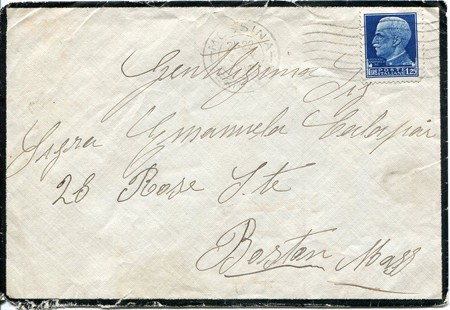 MESSINA
POSTE ITALIANE
LIRE 1,25
Gentilissima
Sig
Sigra Emanuela Calapai
28 Rose Ste
Boston Mass